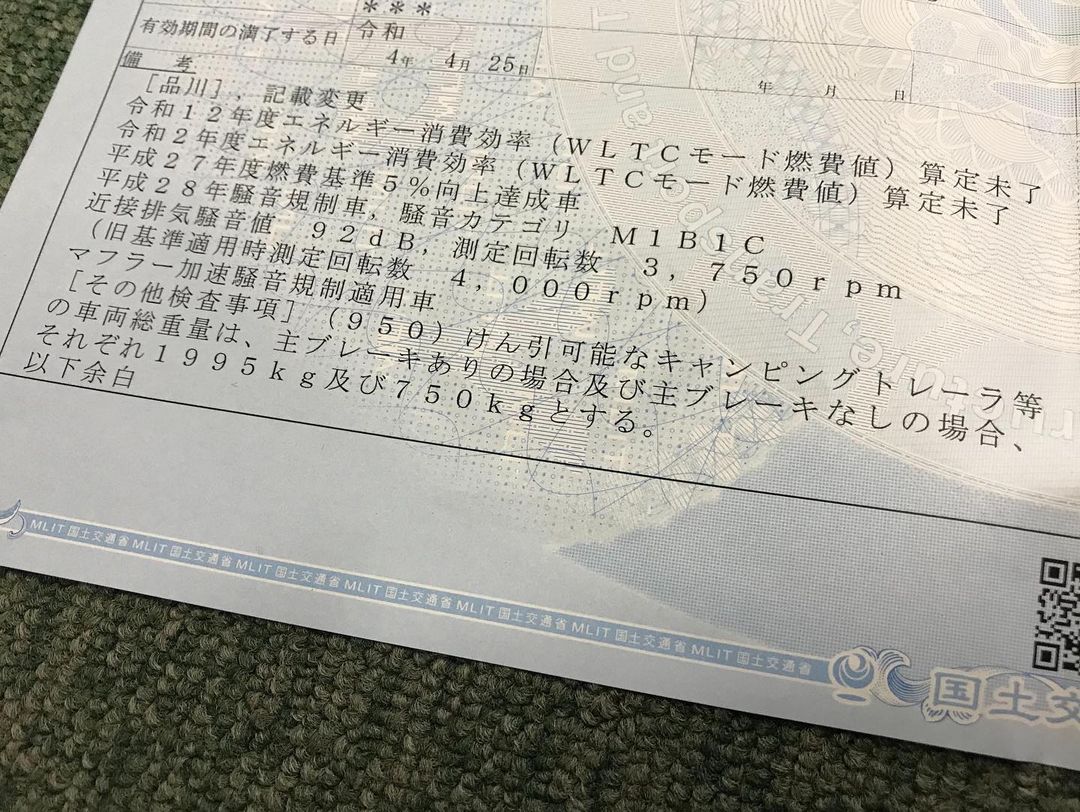 ***
有効期間の満了する日 令和
4年 4月 25日
年 月 日
備考
[品川],記載変更
令和12年度エネルギー消費効率(WLTCモード燃費値)算定未了
令和2年度エネルギー消費効率(WLTCモード燃費値)算定未了
平成27年度燃費基準5%向上達成車
平成28年騒音規制車,騒音カテゴリ M1B1C
近接排気騒音値 92dB,測定回転数 3,750rpm
(旧基準適用時測定回転数 4,000rpm)
マフラー加速騒音規制適用車
[その他検査事項](950)けん引可能なキャンピングトレーラ等
の車両総重量は、主ブレーキありの場合及び主ブレーキなしの場合、
それぞれ1995kg及び750kgとする。
以下余白
MLIT 国土交通省 MLIT 国土交通省 MLIT 国土交通省 MLIT 国土交通省 MLIT 国土交通省 MLIT 国土交通省 MLIT 国土交通省
国土交